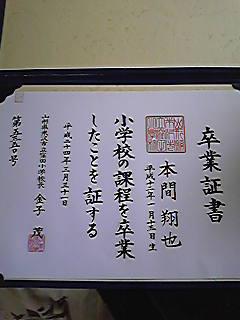 卒業証書
本間翔也
平成十一年二月十三日生
小学校の課程を卒業
したことを証する
平成二十四年三月三十一日
山形県米沢市立窪田小学校長 金子 茂